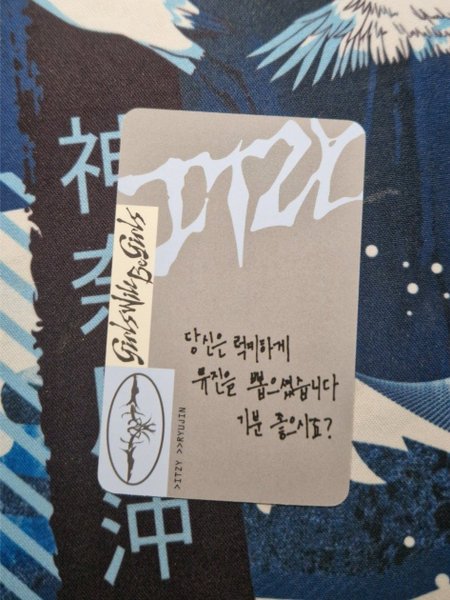 ITZY
Girls Will Be Girls
당신은 럭키하게
류진을 뽑으셨습니다
기분 좋으시죠?
>ITZY >>RYUJIN
神奈川沖